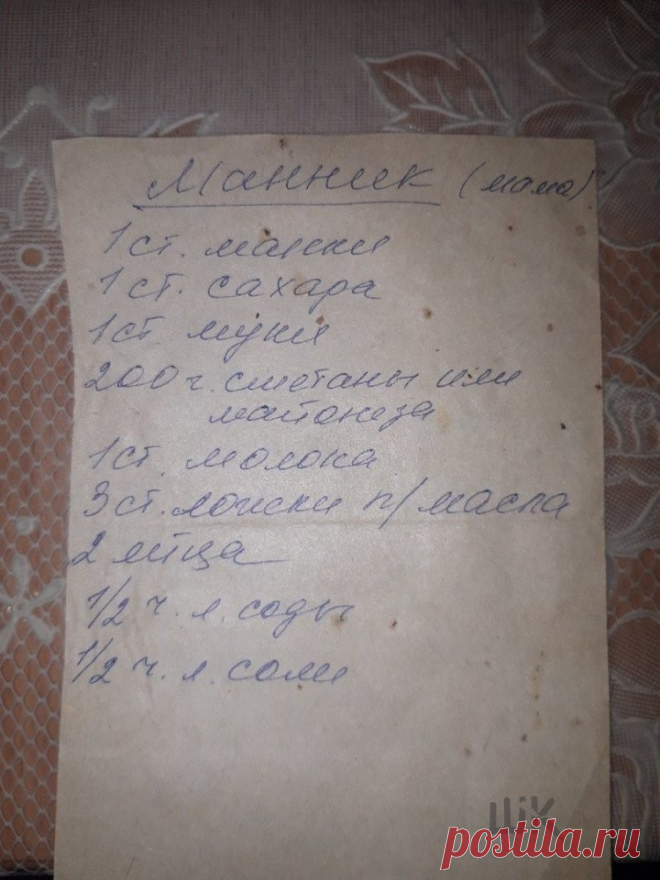 Манник (мама)
1 ст. манки
1 ст. сахара
1 ст муки
200 г. сметаны или
майонеза
1 ст. молока
3 ст. ложки п/масла
2 яйца
1/2 ч. л. соды
1/2 ч. л. соли
postila.ru